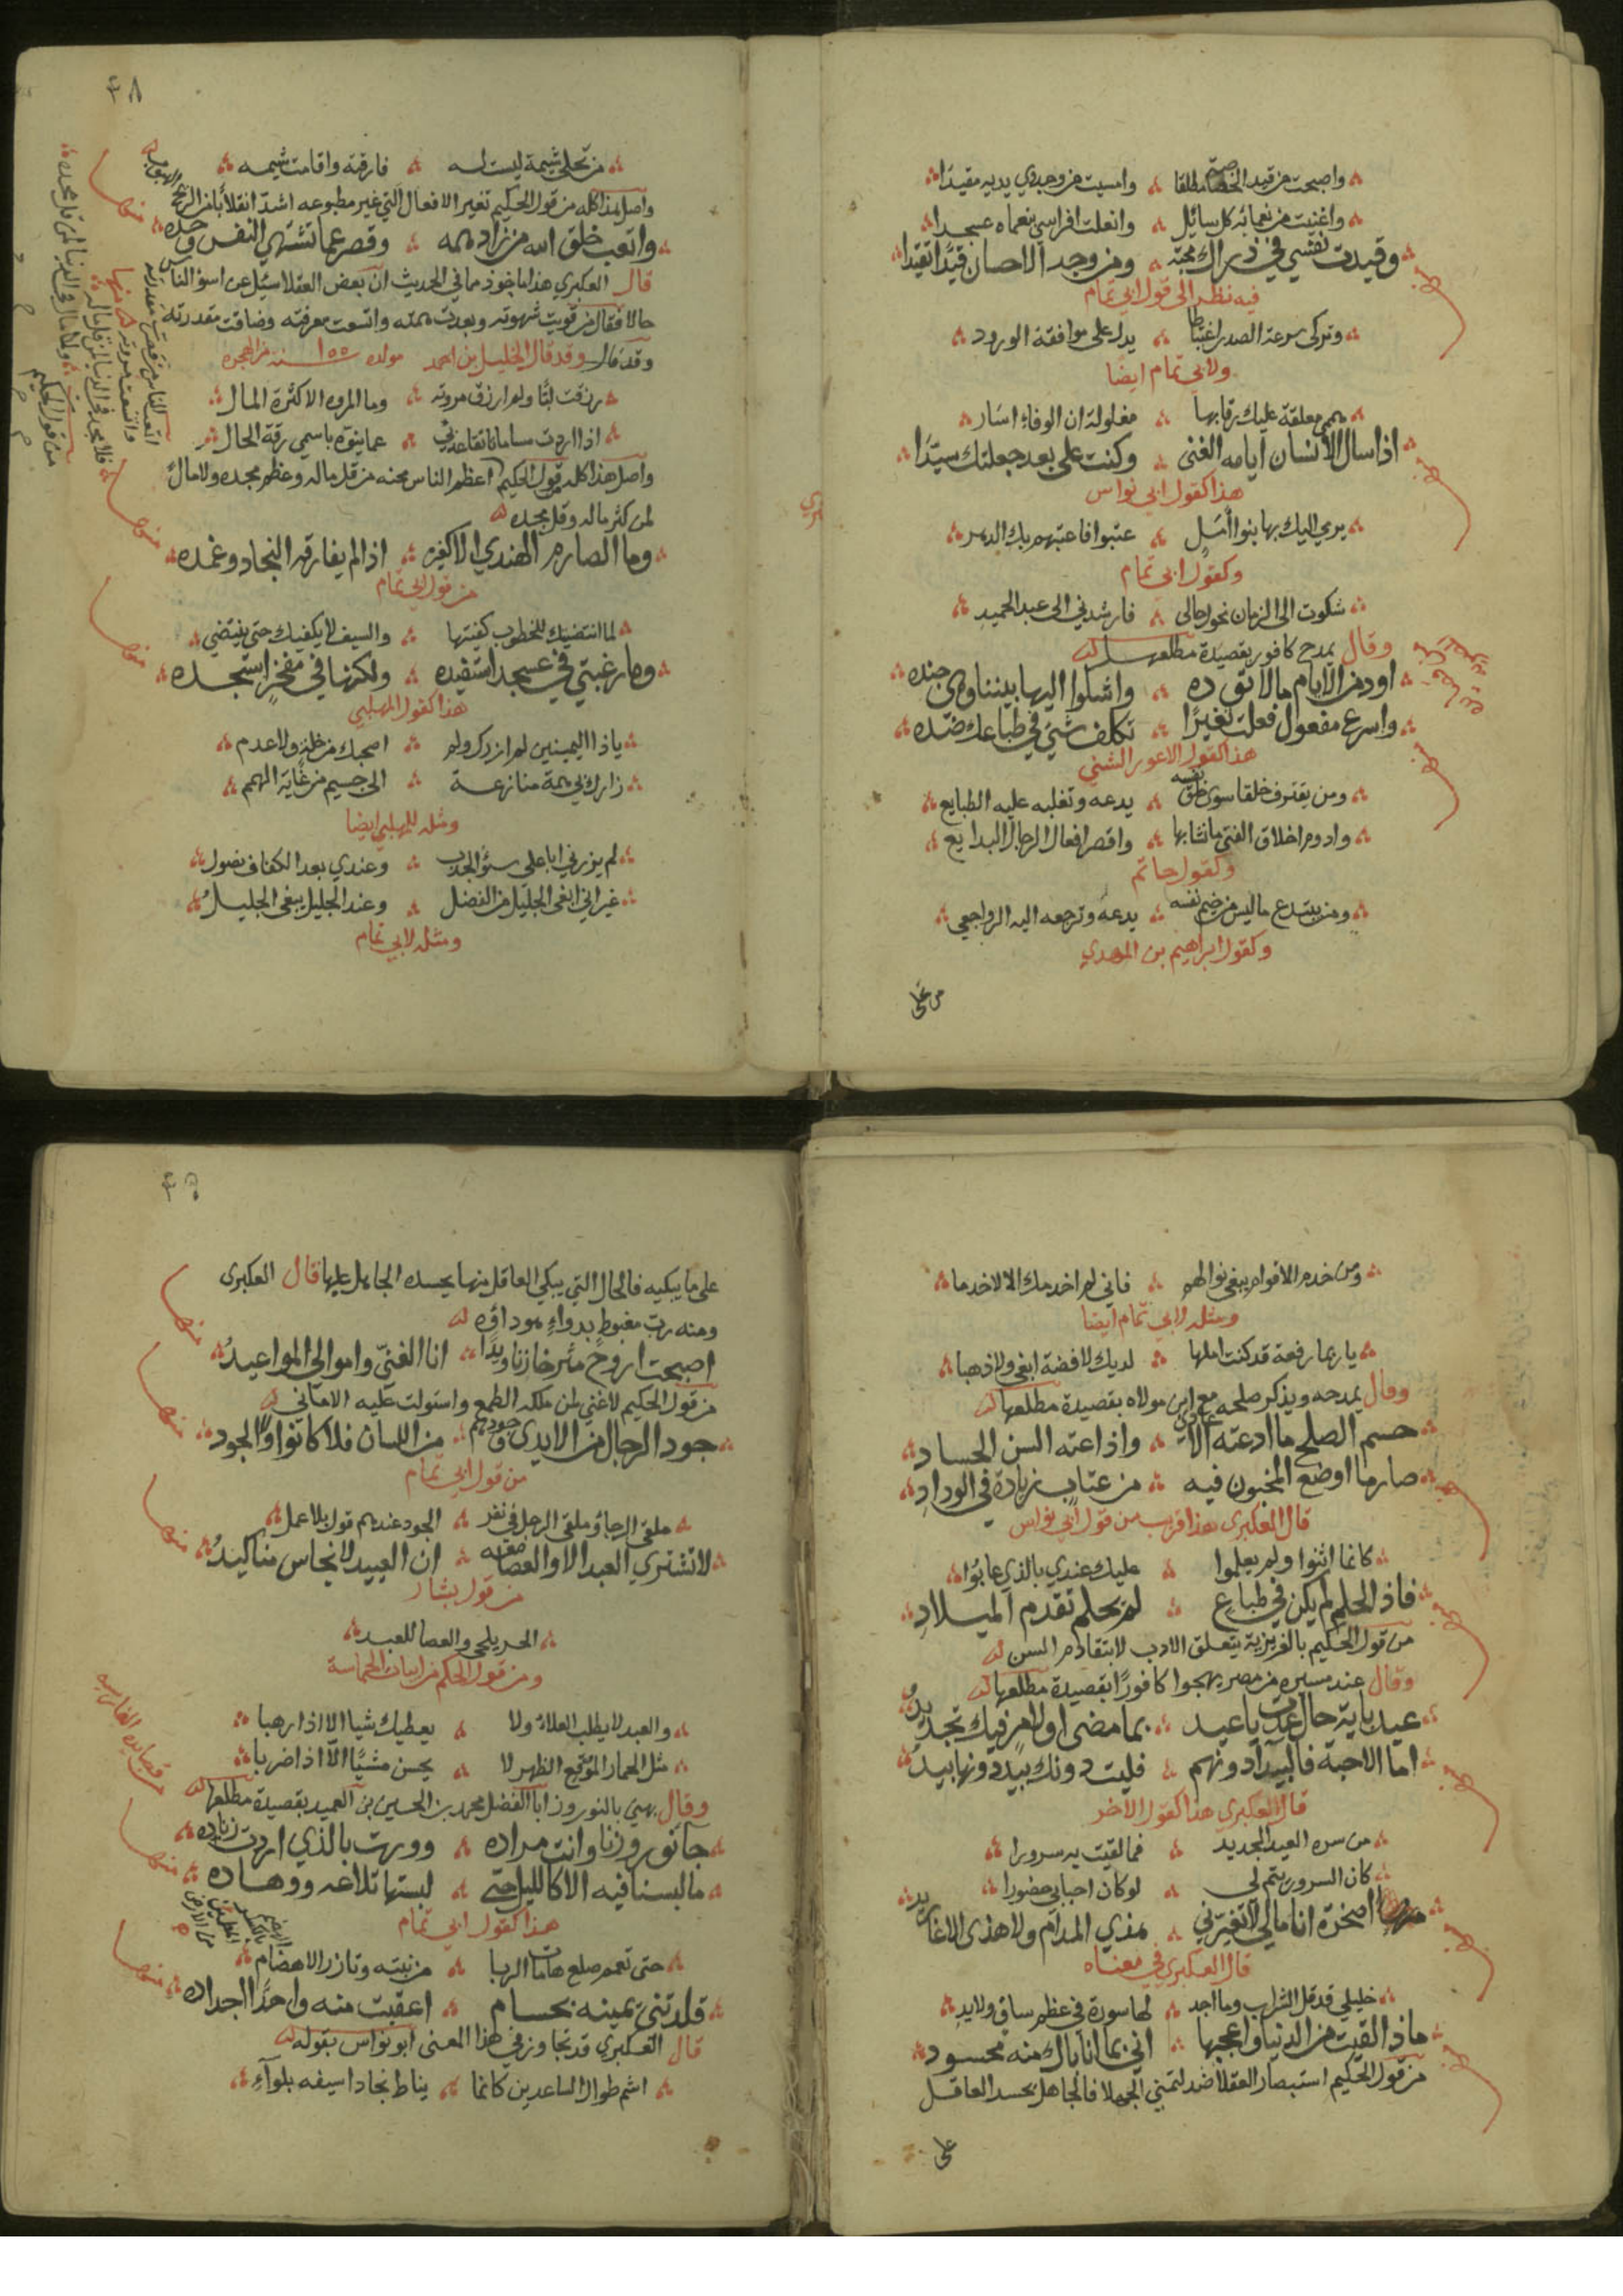 واصبحت من قيد الخصاصة مطلقا ؞ وامسيت من وجدي يديه مقيدا
واغنيت من نعمائه كل سائل ؞ وانعلت افراسي بنعماه عسجدا
وقيدت نفسي في ذراك محبة ؞ ومن وجد الاحسان قيدًا تقيدا
فيه نظر الى قول ابي تمام
وتركى سرعة الصدر اغتباطا ؞ يدل على موافقة الورود
ولابي تمام ايضا
هممي معلقة عليك رقابها ؞ مغلولة ان الوفاء اسار
اذا سال الانسان ايامه الغنى ؞ وكنت على بعد جعلتك سيدا
هذا كقول ابي نواس
يرمي اليك بها بنوا امل ؞ عتبوا فاعتبهم بك الدهر
وكقول ابي تمام
شكوت الى الزمان نحول حالى ؞ فارشدني الى عبد الحميد
وقال يمدح كافور بقصيدة مطلعها
اود من الايام مالا توده ؞ واشكوا اليها بيننا وهي جنده
واسرع مفعول فعلت تغيرًا ؞ تكلف شيء في طباعك ضده
هذا كقول الاعور الشني
ومن يقترف خلقا سوى خلق نفسه ؞ يدعه وتغلبه عليه الطبايع
وادوم اخلاق الفتى ما نشا بها ؞ واقصر افعال الرجال البدايع
وكقول حاتم
ومن يبتدع ما ليس من خيم نفسه ؞ يدعه وترجعه اليه الرواجعي
وكقول ابراهيم بن المهدي
من تحلى
٤٨
من تحلى شيمة ليست له ؞ فارقته واقامت شيمه
واصل هذا كله من قول الحكيم تغير الافعال التي غير مطبوعه اشد انقلابًا من الريح الهبوب
واتعب خلق الله من زاد همه ؞ وقصر عما تشتهي النفس وجده
قال العكبري هذا ماخوذ مما في الحديث ان بعض العقلا سئل عن اسوا الناس
حالا فقال من قويت شهوته وبعدت همته واتسعت معرفته وضاقت مقدرته
وقد قال وقد قال الخليل بن احمد مولده ١٥٥ سنة من الهجرة
رزقت لبًا ولم ارزق مروته ؞ وما المروة الا كثرة المال
اذا اردت مساماة تقاعدني ؞ عما ينوه باسمي رقة الحال
واصل هذا كله قول الحكيم اعظم الناس محنه من قل ماله وعظم مجده ولا مال
لمن كثر ماله وقل مجده
وما الصارم الهندي الا كغيره ؞ اذا لم يفارقه النجاد وغمده
من قول ابي تمام
لما انتضيتك للخطوب كفيتها ؞ والسيف لا يكفيك حتى ينتضي
وما رغبتي في عسجد استفيده ؞ ولكنها في مفخر استجده
هذا كقول المهلبي
ياذا اليمينين لم ازرك ولم ؞ اصحبك من خلة ولا عدم
زارك بي همة منازعة ؞ الى جسيم من غاية الهمم
ومثله للمهلبي ايضا
لم يزرني ابا على سنو الجدب ؞ وعندي بعد الكفاف فضول
غير اني ابغى الجليل من الفضل ؞ وعند الجليل يبغى الجليل
ومثله لابي تمام
ومن خدم الاقوام يبغي نوالهم ؞ فاني لم اخدمك الا لاخدما
ومثله لابي تمام ايضا
يا ربما رفعة قد كنت املها ؞ لديك لا فضة ابغى ولا ذهبا
وقال يمدحه ويذكر صلحه مع ابن مولاه بقصيدة مطلعها
حسم الصلح ما ادعته الاعادي ؞ واذاعته السن الحساد
صار ما اوضع المخبون فيه ؞ من عتاب زيادة في الوداد
قال العكبري هذا قريب من قول ابي نواس
كانما اثنوا ولم يعلموا ؞ عليك عندي بالذي عابوا
فاذا الحلم لم يكن في طباع ؞ لم يحلم تقدم الميلاد
من قول الحكيم بالغريزية يتعلق الادب لا بتقادم السن
وقال عند مسيره من مصر يهجوا كافورًا بقصيدة مطلعها
عيد باية حال عدت يا عيد ؞ بما مضى ام لامر فيك تجديد
اما الاحبة فالبيدآ دونهم ؞ فليت دونك بيد دونها بيد
قال العكبري هذا كقول الاخر
من سره العيد الجديد ؞ فما لقيت به سرورا
كان السرور يتم لي ؞ لو كان احبابي حضورا
اصخرة انا مالي لا تغيرني ؞ هذي المدام ولا هذي الاغاريد
قال العكبري في معناه
خليلي قد قل الشراب وما اجد ؞ لها سورة في عظم ساق ولا يد
ماذا لقيت من الدنيا واعجبها ؞ اني بما انا باك منه محسود
من قول الحكيم استبصار العقلا ضد لتمني الجهلا فالجاهل يحسد العاقل
على
٤٩
على ما يبكيه فالحال التي يبكي العاقل منها يحسده الجاهل عليها قال العكبري
ومنه رب مغبوط بدواء هو داؤه
اصبحت اروح مثر خازنا ويدا ؞ انا الغني واموالي المواعيد
من قول الحكيم لا غني لمن ملكه الطمع واستولت عليه الاماني
جود الرجال من الايدي وجودهم ؞ من اللسان فلا كانوا ولا الجود
من قول ابي تمام
ملقى الرجاء وملقى الرحل في نفر ؞ الجود عندهم قول بلا عمل
لا تشتري العبد الا والعصا معه ؞ ان العبيد لانجاس مناكيد
من قول بشار
الحر يلحى والعصا للعبد
ومن قول الحكم من ابيات الحماسة
والعبد لا يطلب العلاء ولا ؞ يعطيك شيا الا اذا رهبا
مثل الحمار الموقع الظهر لا ؞ يحسن مشيًا الا اذا ضربا
وقال يهني بالنوروز ابا الفضل محمد بن الحسين بن العميد بقصيدة مطلعها
جا نوروزنا وانت مراده ؞ وورت بالذي اردت زناده
ما لبسنا فيه الاكاليل حتى ؞ لبستها تلاعه ووهاده
هذا كقول ابي تمام
حتى تعمم صلع هامات الربا ؞ من نبته وتازر الاهضام
قلدتني يمينه بحسام ؞ اعقبت منه واحدًا اجداده
قال العكبري قد تجاوز في هذا المعنى ابو نواس بقوله
اشم طوال الساعدين كانما ؞ يناط نجادا سيفه بلوآء